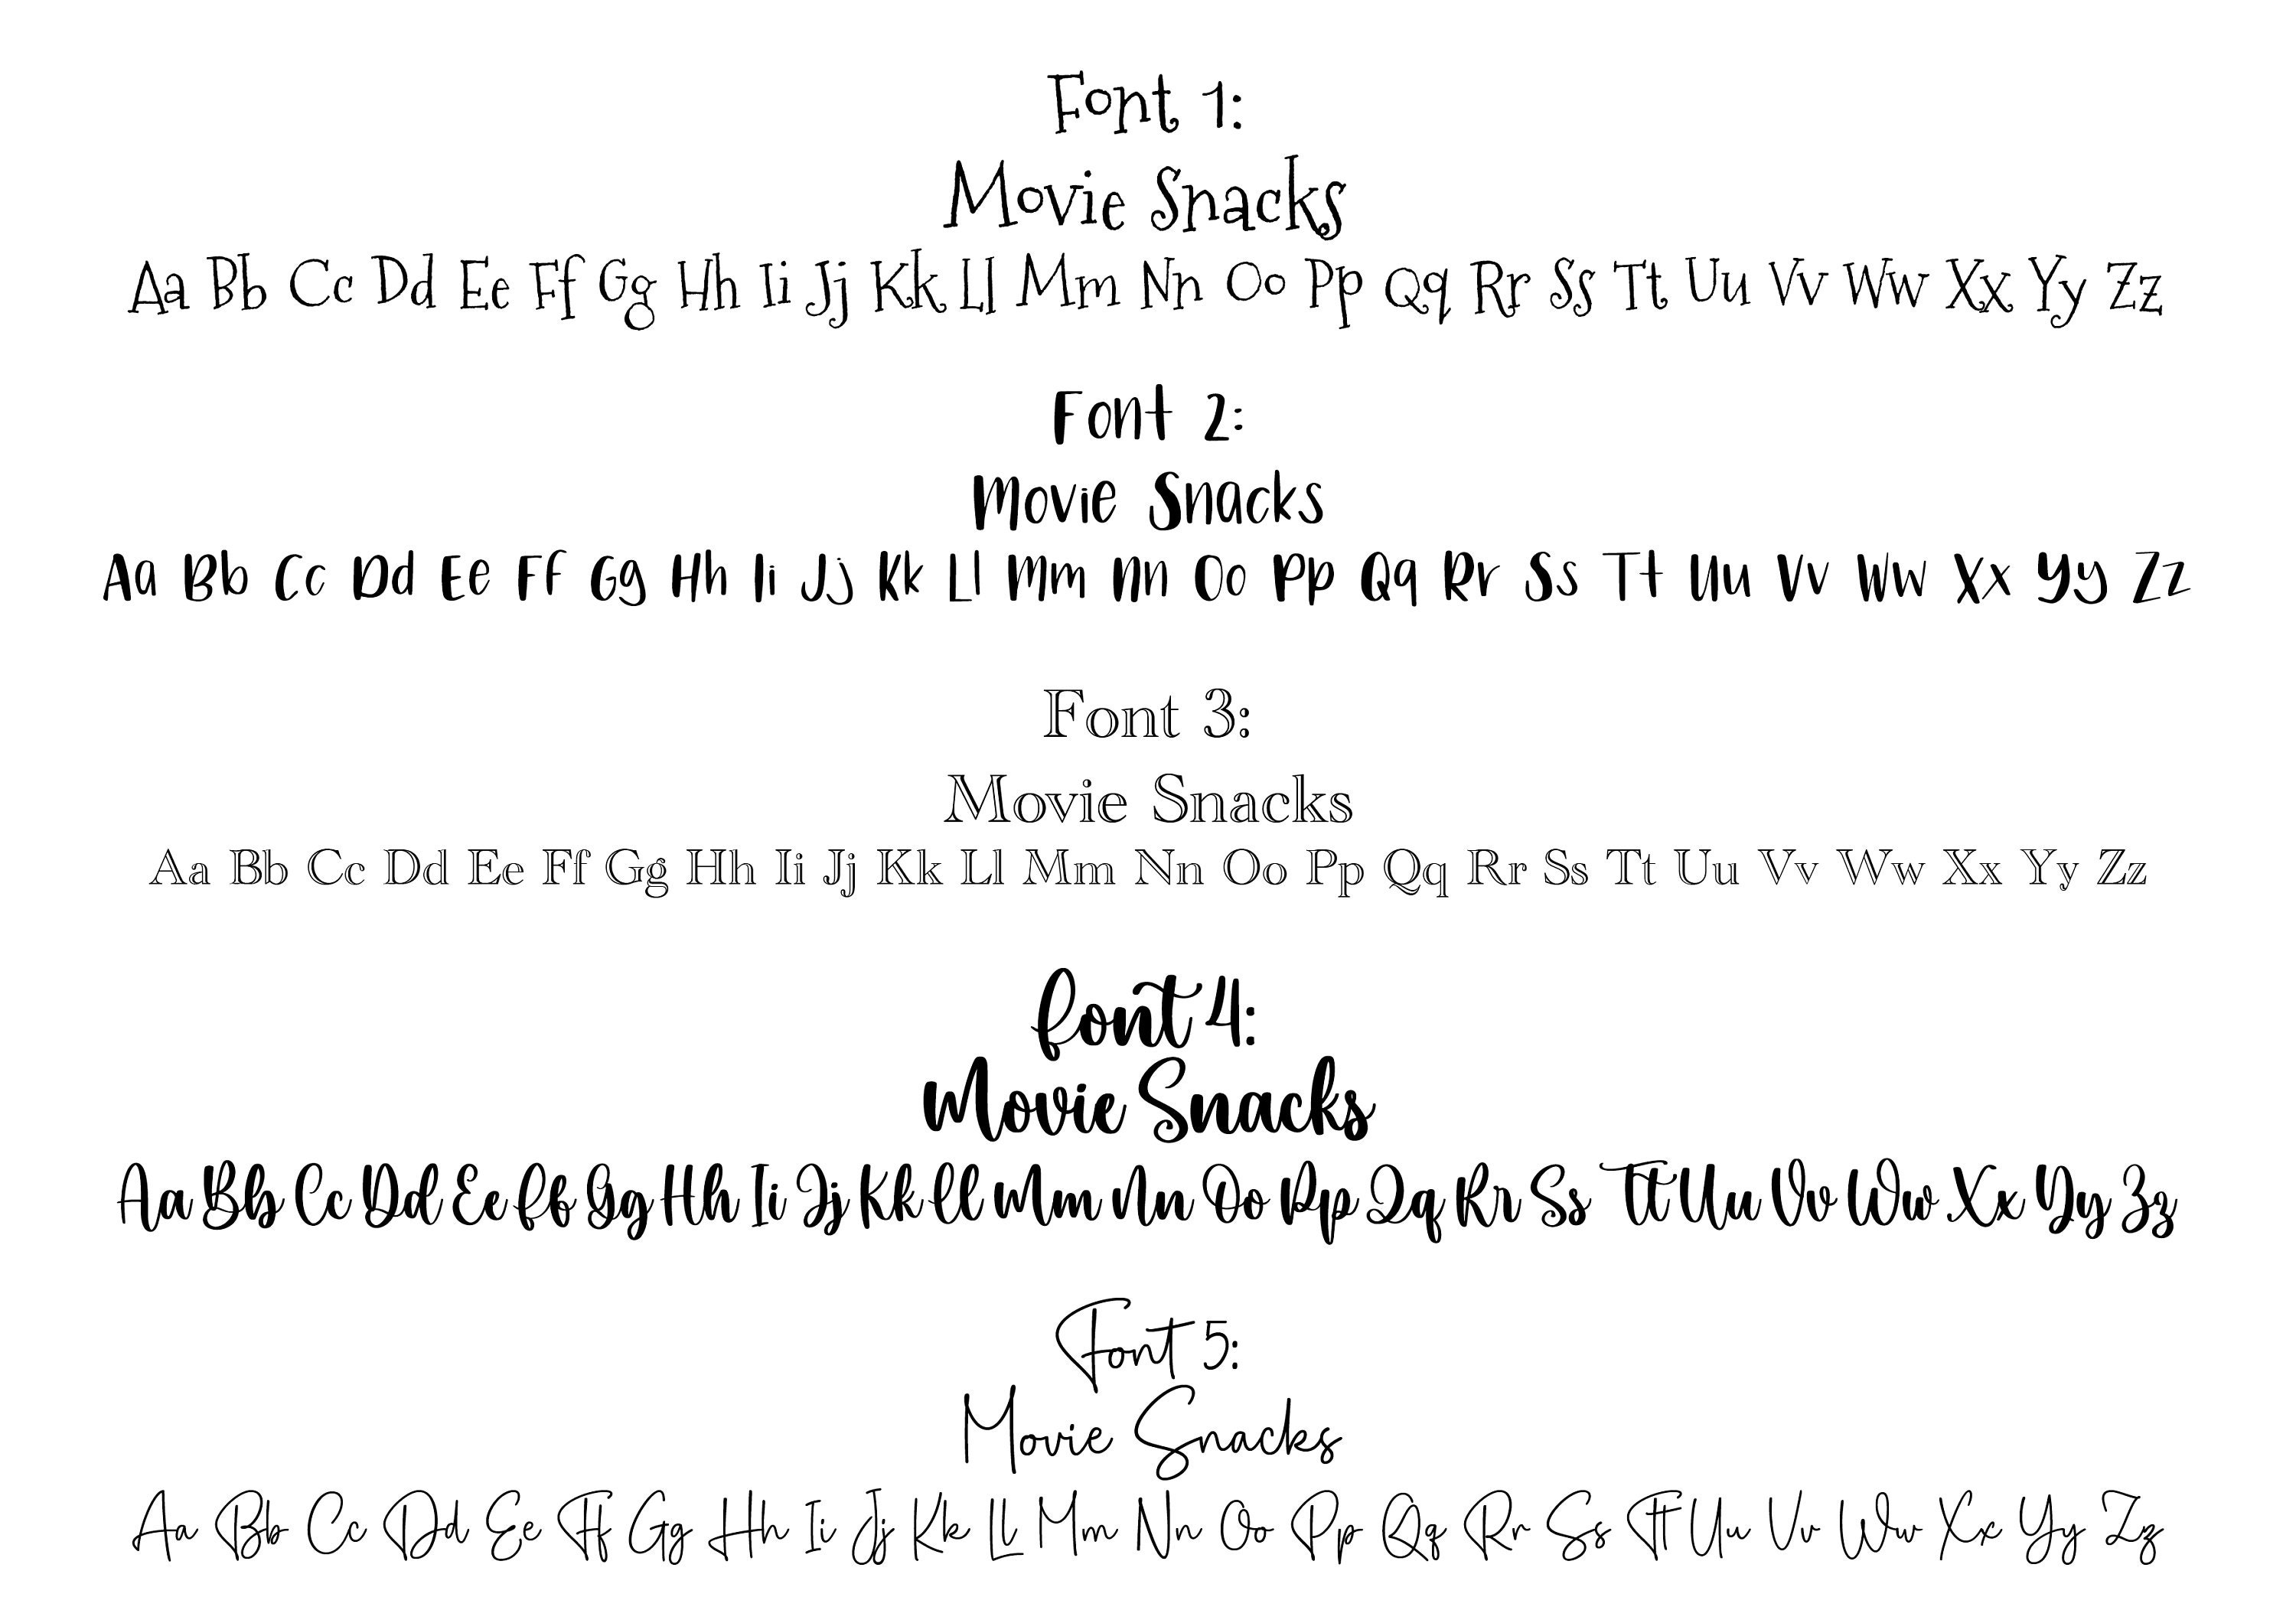 Font 1:
Movie Snacks
Aa Bb Cc Dd Ee Ff Gg Hh Ii Jj Kk Ll Mm Nn Oo Pp Qq Rr Ss Tt Uu Vv Ww Xx Yy Zz
Font 2:
Movie Snacks
Aa Bb Cc Dd Ee Ff Gg Hh Ii Jj Kk Ll Mm Nn Oo Pp Qq Rr Ss Tt Uu Vv Ww Xx Yy Zz
Font 3:
Movie Snacks
Aa Bb Cc Dd Ee Ff Gg Hh Ii Jj Kk Ll Mm Nn Oo Pp Qq Rr Ss Tt Uu Vv Ww Xx Yy Zz
Font 4:
Movie Snacks
Aa Bb Cc Dd Ee Ff Gg Hh Ii Jj Kk Ll Mm Nn Oo Pp Qq Rr Ss Tt Uu Vv Ww Xx Yy Zz
Font 5:
Movie Snacks
Aa Bb Cc Dd Ee Ff Gg Hh Ii Jj Kk Ll Mm Nn Oo Pp Qq Rr Ss Tt Uu Vv Ww Xx Yy Zz